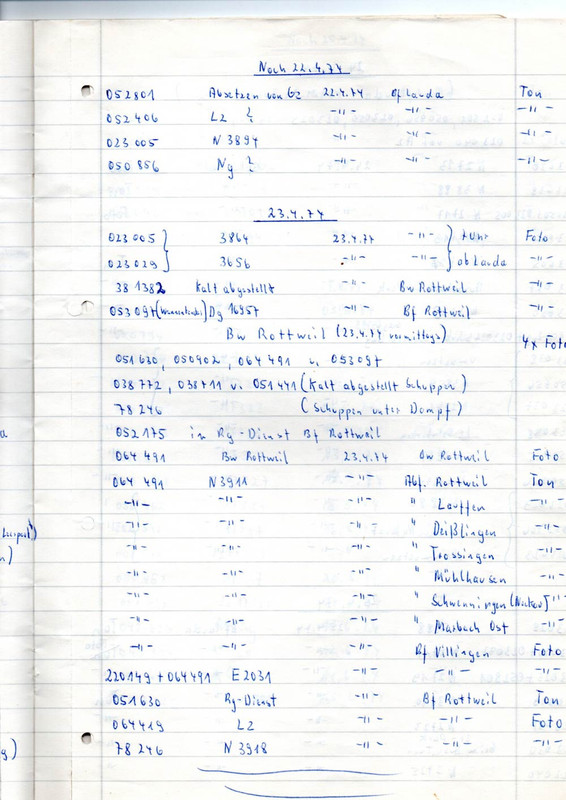 Noch 22.4.74
052801 Absetzen von Gz 22.4.74 Bf Lauda Ton
052406 Lz } -"- -"- -"-
023005 N 3894 -"- -"- -"-
050856 Ng } -"- -"- -"-
23.4.74
023005 } 3864 23.4.74 -"- } Foto
023029 } 3656 -"- -"- } ob Lauda -"-
381382 Kalt abgestellt Bw Rottweil -"-
053097 Dg 16957 -"- Bf Rottweil -"-
Bw Rottweil (23.4.74 vormittags) 4x Foto
051630, 050902, 064491 u. 053097
038772, 038711 u. 051441 (Kalt abgestellt Schuppen)
78246 (Schuppen unter Dampf)
052175 in Rg-Dienst Bf Rottweil
064491 Bw Rottweil 23.4.74 Bw Rottweil Foto
064 491 N3911 -"- Abf. Rottweil Ton
-"- -"- -"- " Lauffen -"-
-"- -"- -"- " Deißlingen -"-
-"- -"- -"- " Trossingen -"-
-"- -"- -"- " Mühlhausen -"-
-"- -"- -"- " Schwenningen (Neckar) -"-
-"- -"- -"- " Marbach Ost -"-
-"- -"- -"- Bf Villingen Foto
220149 + 064491 E2031 -"- -"- -"-
051630 Rg-Dienst -"- Bf Rottweil Ton
064419 Lz -"- -"- Foto
78 246 N 3918 -"- -"- -"-